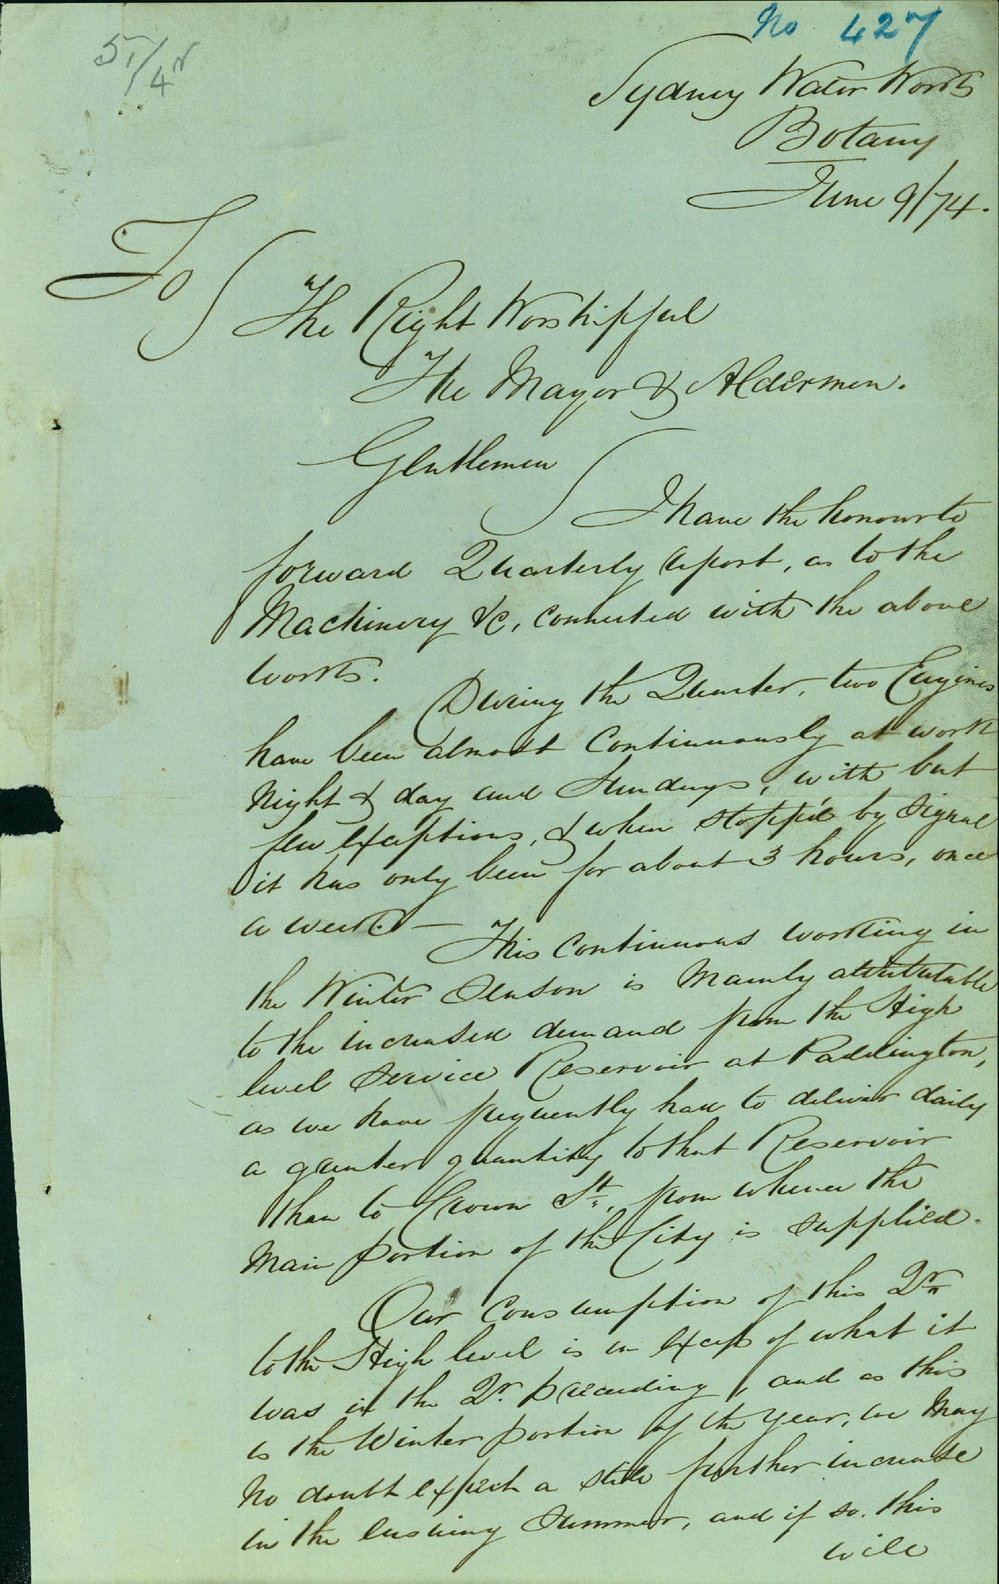 No 427
Sydney Water Works
Botany
June 9/74.
To
The Right Worshipful
The Mayor & Aldermen.
Gentlemen
I have the honour to
forward Quarterly Report, as to the
Machinery &c, connected with the above
works.
During the Quarter, two Engines
have been almost continuously at work
Night & day and Sundays, with but
few exceptions, & when stopp'd by signal
it has only been for about 3 hours, once
a week. —
This continuous working in
the Winter Season is mainly
to the increased demand from the High
level Service Reservoir at Paddington,
as we have frequently had to deliver daily
a greater quantity to that Reservoir
than to Crown St., from whence the
Main portion of the City is supplied.
Our consumption of this Qr
to the High level is in excess of what it
was in the Qr. preceeding, and as this
is the Winter portion of the year, we may
No doubt expect a still further increase
in the ensuing Summer, and if so, this
will